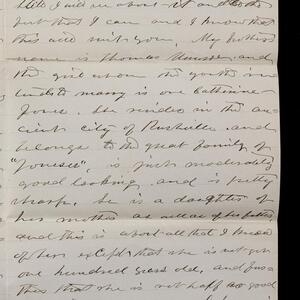 but that I can and I know that
this will suit you. My brothers
name is Thomas and
the girl whom the youth in-
tends to marry is one Catherine
Jones. She resides in the an
cient city of Rushville and
belongs to the great family of
"Joneses", is just moderately
good looking and is pretty
sharp. She is a daughter of
her mother as well as of her father
and this is about all I know
of her except that she is not yet
one hundred years old, and
that she is not half as good